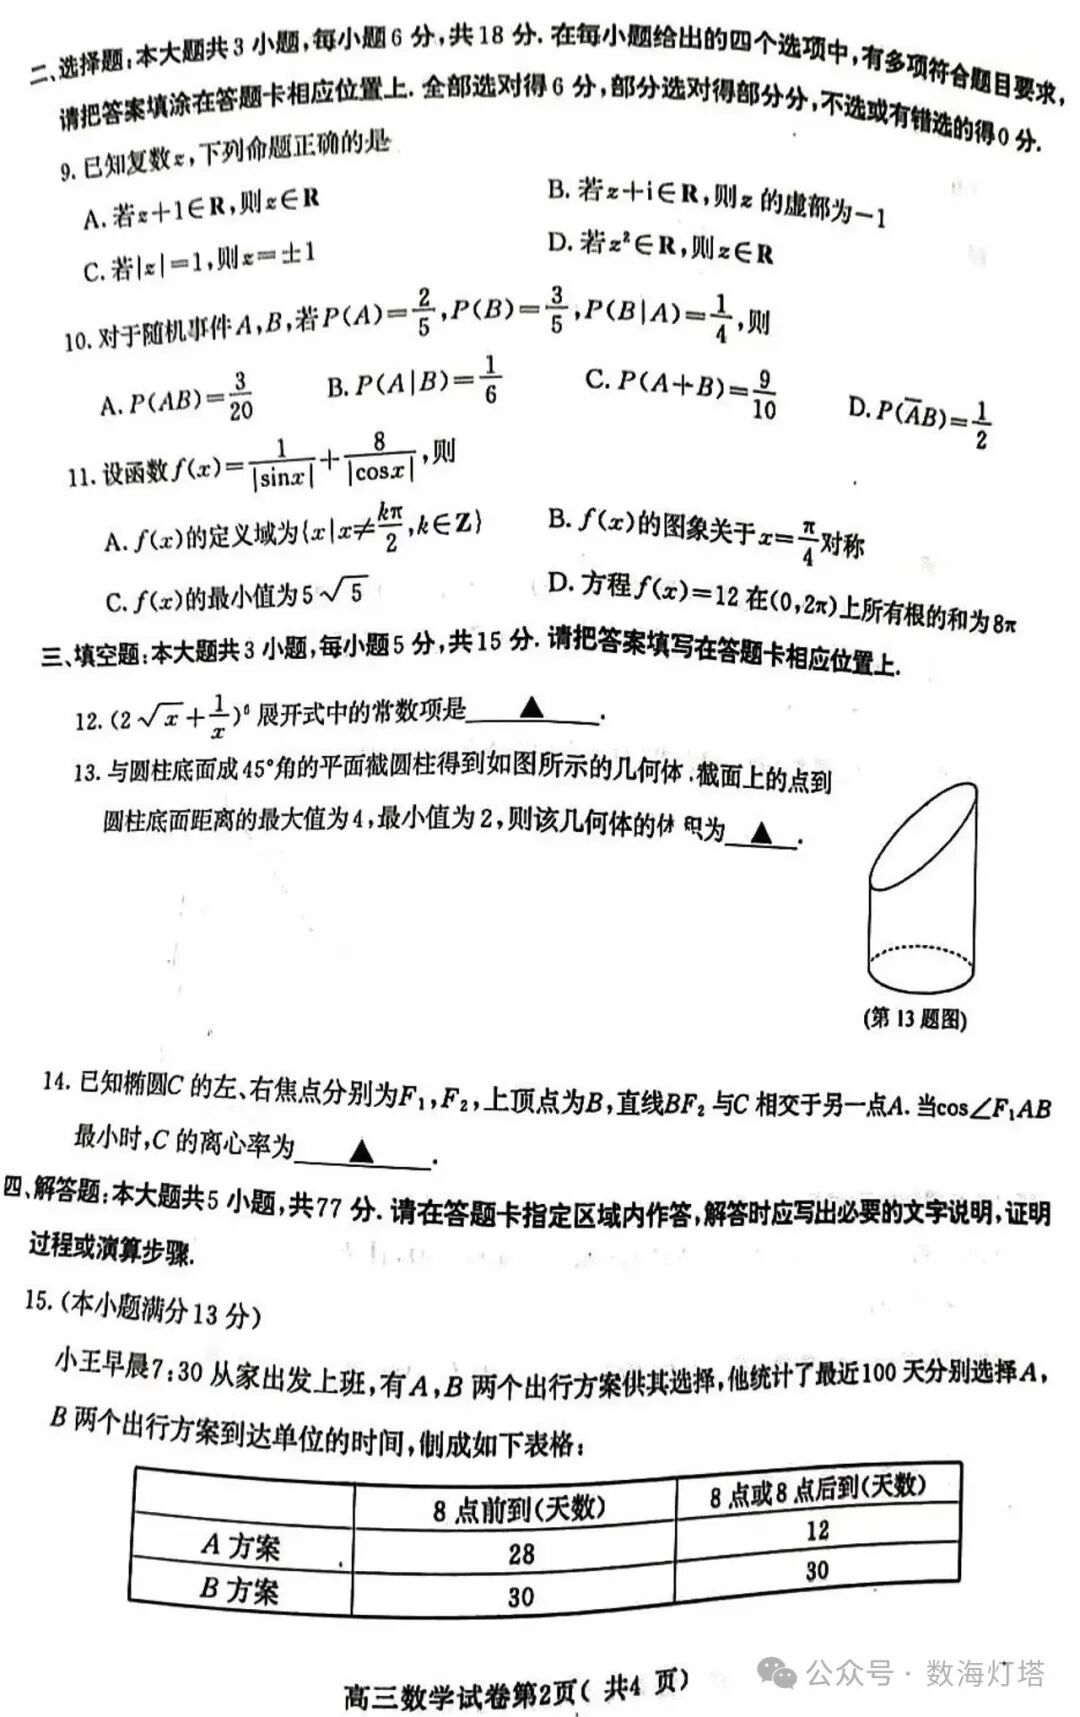 二、选择题:本大题共3小题,每小题6分,共18分.在每小题给出的四个选项中,有多项符合题目要求,
请把答案填涂在答题卡相应位置上.全部选对得6分,部分选对得部分分,不选或有错选的得0分.
9.已知复数z,下列命题正确的是
A.若z+1∈R,则z∈R B.若z+i∈R,则z的虚部为-1
C.若|z|=1,则z=±1 D.若z²∈R,则z∈R
10.对于随机事件A,B,若P(A)=2/5,P(B)=3/5,P(B|A)=1/4,则
A.P(AB)=3/20 B.P(A|B)=1/6 C.P(A+B)=9/10 D.P(A̅B)=1/2
11.设函数f(x)=1/|sinx|+8/|cosx|,则
A.f(x)的定义域为{x|x≠kπ/2,k∈Z} B.f(x)的图象关于x=π/4对称
C.f(x)的最小值为5√5 D.方程f(x)=12在(0,2π)上所有根的和为8π
三、填空题:本大题共3小题,每小题5分,共15分.请把答案填写在答题卡相应位置上.
12.(2√x+1/x)⁶展开式中的常数项是 ▲ .
13.与圆柱底面成45°角的平面截圆柱得到如图所示的几何体.截面上的点到
圆柱底面距离的最大值为4,最小值为2,则该几何体的体积为 ▲ .
(第13题图)
14.已知椭圆C的左、右焦点分别为F₁,F₂,上顶点为B,直线BF₂与C相交于另一点A.当cos∠F₁AB
最小时,C的离心率为 ▲ .
四、解答题:本大题共5小题,共77分.请在答题卡指定区域内作答,解答时应写出必要的文字说明,证明
过程或演算步骤.
15.(本小题满分13分)
小王早晨7:30从家出发上班,有A,B两个出行方案供其选择,他统计了最近100天分别选择A,
B两个出行方案到达单位的时间,制成如下表格:
8点前到(天数) 8点或8点后到(天数)
A方案 28 12
B方案 30 30
高三数学试卷第2页(共4页)
公众号·数海灯塔